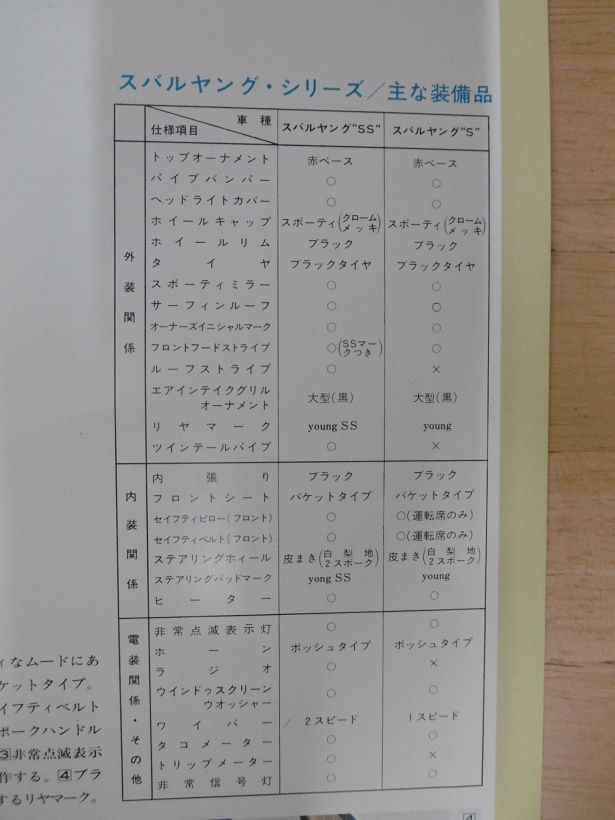 スバルヤング・シリーズ/主な装備品
車種
仕様項目 スバルヤング"SS" スバルヤング"S"
外装関係
トップオーナメント 赤ベース 赤ベース
パイプバンパー ○ ○
ヘッドライトカバー ○ ○
ホイールキャップ スポーティ(クロームメッキ) スポーティ(クロームメッキ)
ホイールリム ブラック ブラック
タイヤ ブラックタイヤ ブラックタイヤ
スポーティミラー ○ ○
サーフィンルーフ ○ ○
オーナーズイニシャルマーク ○ ○
フロントフードストライプ ○(SSマークつき) ○
ルーフストライプ ○ ×
エアインテイクグリル
オーナメント 大型(黒) 大型(黒)
リヤマーク young SS young
ツインテールパイプ ○ ×
内装関係
内張り ブラック ブラック
フロントシート バケットタイプ バケットタイプ
セイフティピロー(フロント) ○ ○(運転席のみ)
セイフティベルト(フロント) ○ ○(運転席のみ)
ステアリングホィール 皮まき(白梨地2スポーク) 皮まき(白梨地2スポーク)
ステアリングパッドマーク yong SS young
ヒーター ○ ○
電装関係・その他
非常点滅表示灯 ○ ○
ホーン ボッシュタイプ ボッシュタイプ
ラジオ ○ ×
ウインドゥスクリーン
ウオッシャー ○ ○
ワイパー 2スピード 1スピード
タコメーター ○ ○
トリップメーター ○ ×
非常信号灯 ○ ○
ィなムードにあ
ケットタイプ。
イフティベルト
ポークハンドル
③非常点滅表示
作する。④ブラ
するリヤマーク。
④